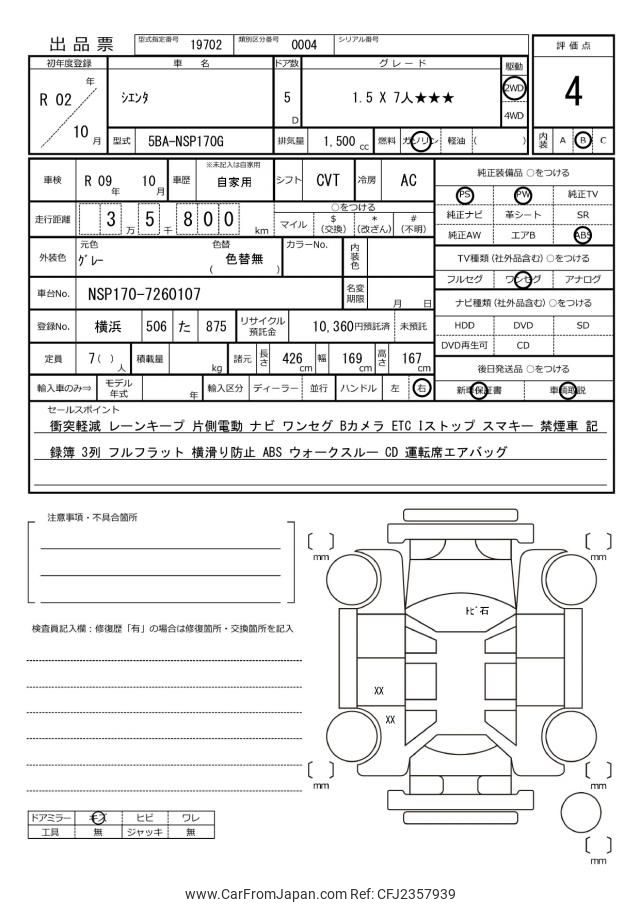 出品票 型式指定番号 19702 類別区分番号 0004 シリアル番号
評価点
初年度登録 車名 ドア数 グレード 駆動
R 02 年 シエンタ 5 D 1.5 X 7人★★★ 2WD 4
10 月 4WD
型式 5BA-NSP170G 排気量 1,500 cc 燃料 ガソリン 軽油 ( ) 内装 A B C
車検 R 09 年 10 月 車歴 ※未記入は自家用 自家用 シフト CVT 冷房 AC
純正装備品 ○をつける
PS PW 純正TV
走行距離 3 5 8 0 0 万 千 km ○をつける
マイル $ (交換) * (改ざん) # (不明)
純正ナビ 革シート SR
純正AW エアB ABS
外装色 元色 グレー 色替 ( 色替無 ) カラーNo. 内装色
TV種類 (社外品含む) ○をつける
フルセグ ワンセグ アナログ
車台No. NSP170-7260107 名変期限 月 日
ナビ種類 (社外品含む) ○をつける
登録No. 横浜 506 た 875 リサイクル預託金 10,360円預託済 未預託
HDD DVD SD
DVD再生可 CD
定員 7( ) 人 積載量 kg 諸元 長さ 426 cm 幅 169 cm 高さ 167 cm
後日発送品 ○をつける
輸入車のみ⇒ モデル年式 年 輸入区分 ディーラー 並行 ハンドル 左 右
新車保証書 車輌取説
セールスポイント
衝突軽減 レーンキープ 片側電動 ナビ ワンセグ Bカメラ ETC Iストップ スマキー 禁煙車 記
録簿 3列 フルフラット 横滑り防止 ABS ウォークスルー CD 運転席エアバッグ
注意事項・不具合箇所
mm mm
トビ石
検査員記入欄：修復歴「有」の場合は修復箇所・交換箇所を記入
XX
XX
mm mm
ドアミラー キズ ヒビ ワレ
工具 無 ジャッキ 無
mm
www.CarFromJapan.com Ref: CFJ2357939